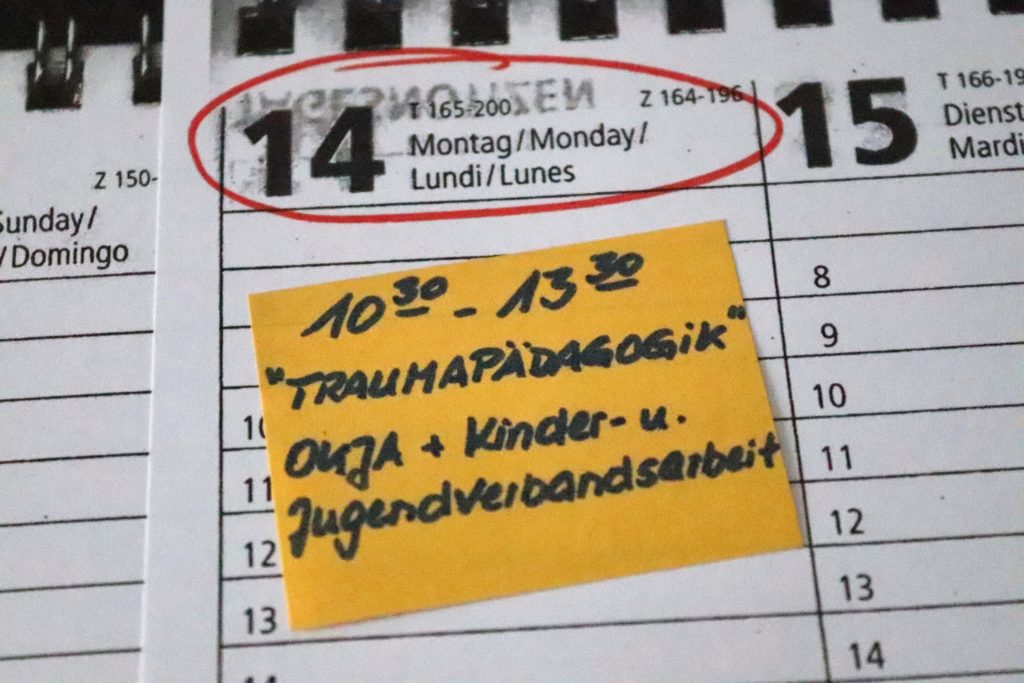 Z 150-
Sunday/
/Domingo
TAGESNOTIZEN
14
T 165-200
Z 164-196
Montag/Monday/
Lundi/Lunes
15
T 166-19
Dienst
Mardi
10³⁰ - 13³⁰
"TRAUMAPÄDAGOGiK"
OKJA + Kinder- u.
Jugendverbandsarbeit
10
11
12
13
14
8
9
10
11
12
13
14